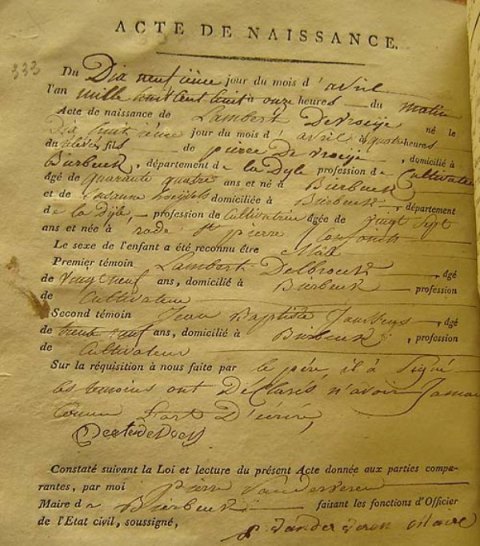 ACTE DE NAISSANCE.
333
Du Dix neuvième jour du mois d'avril
l'an mille huit cent huit à onze heures du matin
Acte de naissance de Lambert De Vroeije né le
Dix huit jour du mois d' avril à quatre heures
du fils de pierre De vroeije, domicilié à
Bierbeek, département de la Dyle profession de Cultivateur
âgé de quarante quatre ans et né à Bierbeek
et de domiciliée à Bierbeek, département
de la Dyle, profession de Cultivatrice âgée de vingt sept
ans et née à rode St pierre
Le sexe de l'enfant a été reconnu être Mâle
Premier témoin Lambert Delbrouck, âgé
de vingt neuf ans, domicilié à Bierbeek profession
de Cultivateur
Second témoin Jean Baptiste, âgé
de trente neuf ans, domicilié à Bierbeek, profession
de Cultivateur
Sur la réquisition à nous faite par le père, il à Signé
les temoins ont Declarés n'avoir Jamai
Connu l'art D'ecrire,
Constaté suivant la Loi et lecture du présent Acte donnée aux parties compa-
rantes, par moi Pierre Vanderveren
Maire de Bierbeek faisant les fonctions d'Officier
de l'Etat civil, soussigné, p vander veren maire